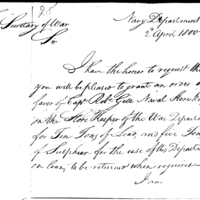 25
Navy Department
2d April 1800
Secretary of War
Sir
I have the honor to request that
you will be pleased to grant an order in
favor of Capt Robt Gill Naval Store Keeper
on the Store Keeper of the War Department
for Ten Tons of Lead, and five Tons
of Sulphur for the use of this Department
on loan, to be returned when required
I am